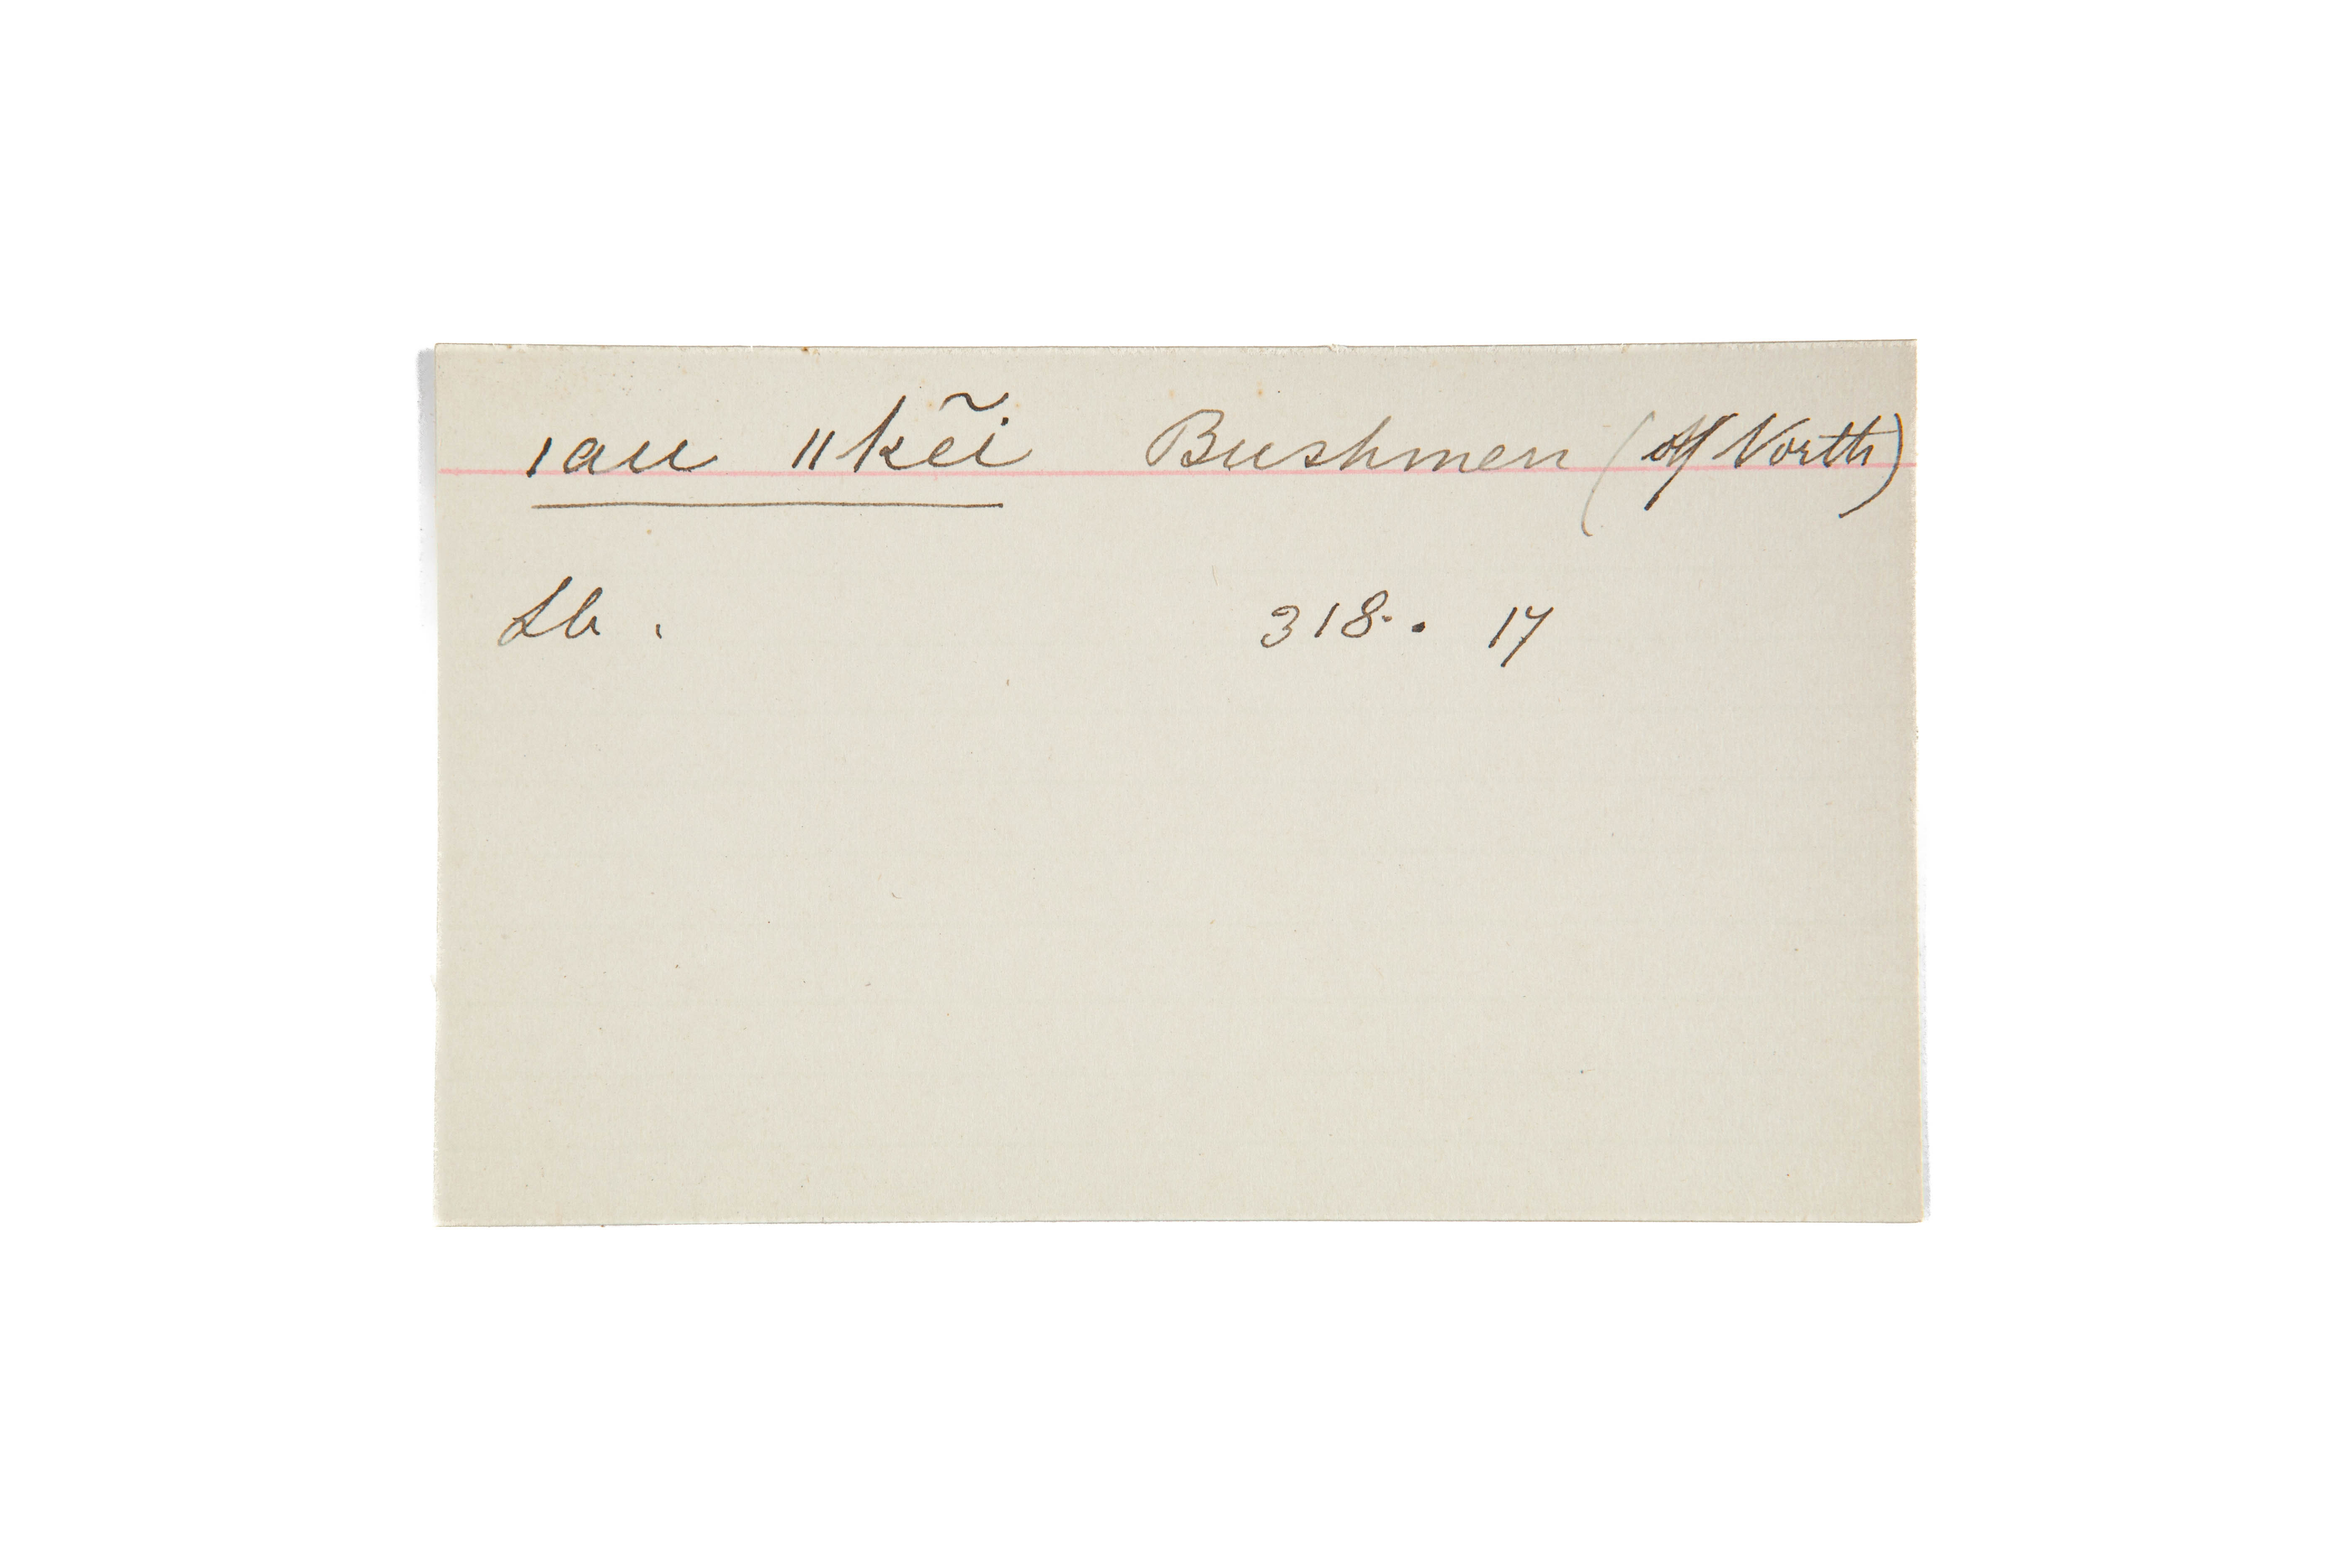 ǀau ǁkẽi Bushmen (of North)
Lb. 318. 17